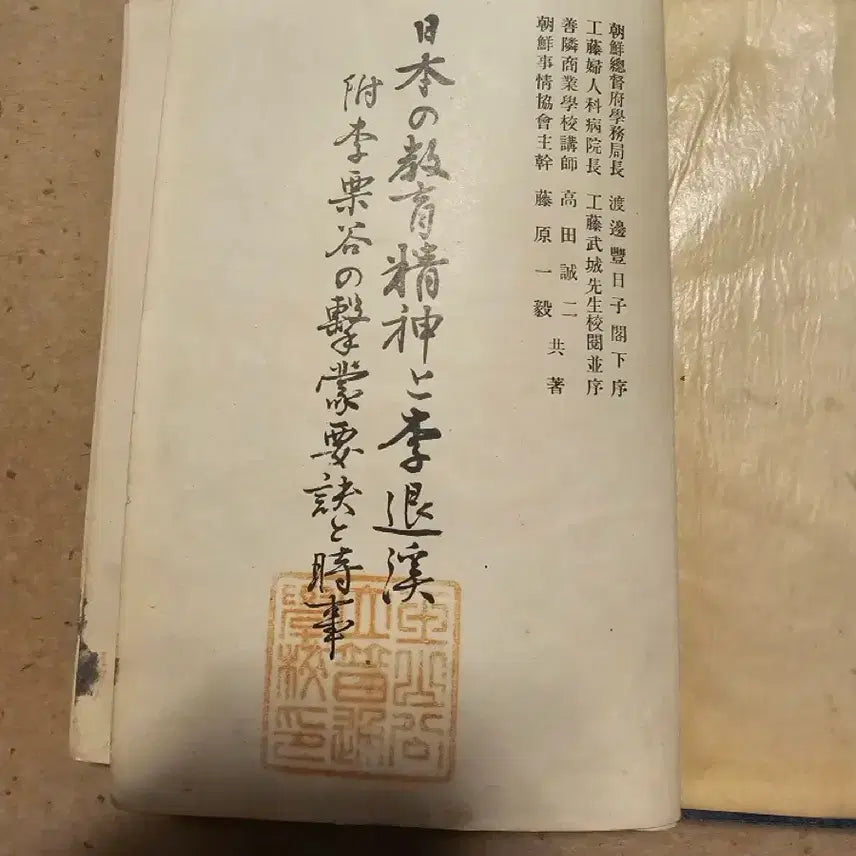 朝鮮總督府學務局長 渡邊豐日子閣下序
工藤婦人科病院長 工藤武城先生校閲並序
善隣商業學校講師 高田誠二
朝鮮事情協會主幹 藤原一毅
共著
日本の教育精神と李退溪
附李栗谷の擊蒙要訣と時事
公
立普通
學校印